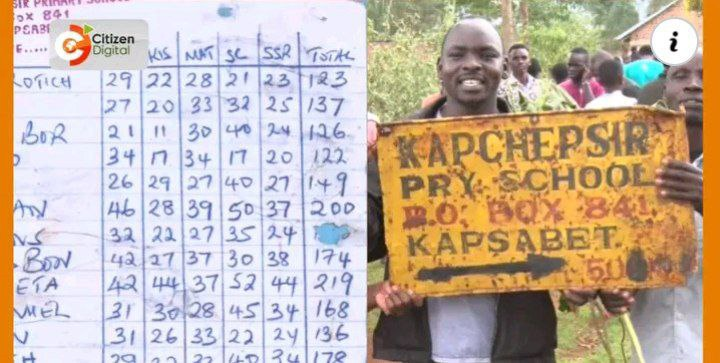 SIR PRIMARY SCHOOL
Box 841
APSABET
Citizen
Digital
KIS MAT SC SSR TOTAL
ROTICH 29 22 28 21 23 123
27 20 33 32 25 137
BOR 21 11 30 40 24 126
34 17 34 17 20 122
26 29 27 40 27 149
AN 46 28 39 50 37 200
NS 32 22 27 35 24
BON 42 27 37 30 38 174
ETA 42 44 37 52 44 219
MEL 31 30 28 45 34 168
N 31 26 33 22 24 136
40 34 178
i
KAPCHEPSIR
PRY SCHOOL
P.O. BOX 841
KAPSABET